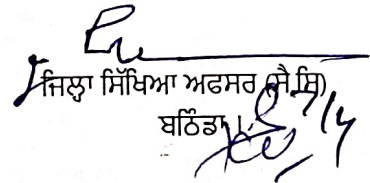 ਜਿਲ੍ਹਾ ਸਿੱਖਿਆ ਅਫਸਰ (ਸੈ.ਸਿ)
ਬਠਿੰਡਾ